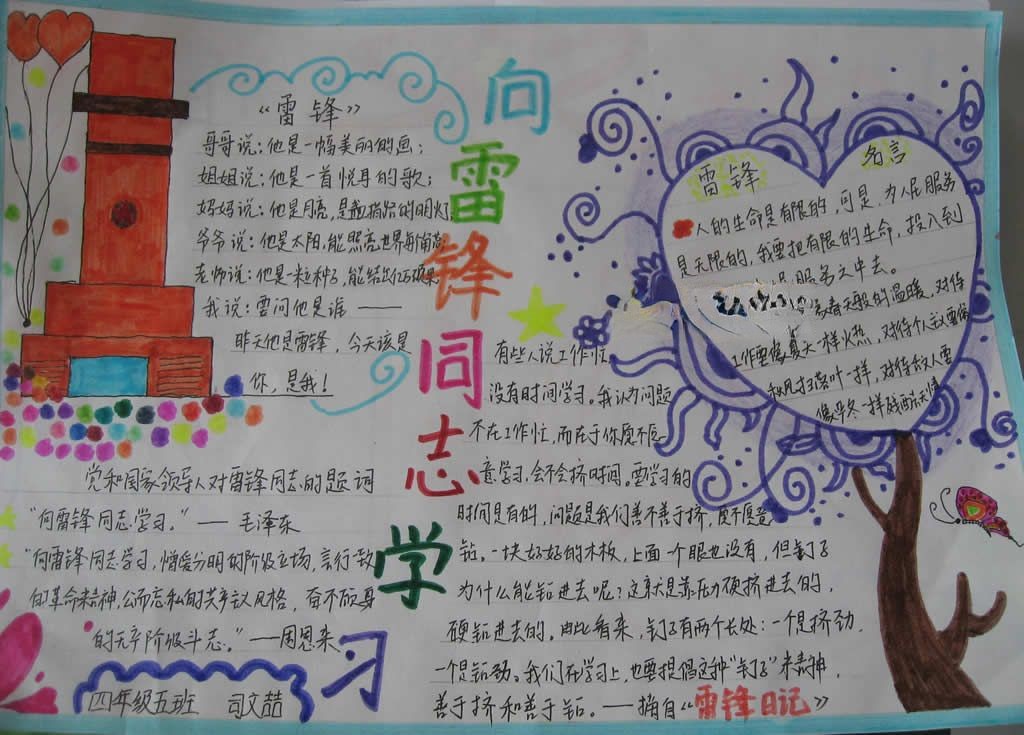 向雷锋同志学习
《雷锋》
哥哥说：他是一幅美丽的画；
姐姐说：他是一首悦耳的歌；
妈妈说：他是月亮，是指路的明灯；
爷爷说：他是太阳，能照亮世界每个角落
老师说：他是一粒种子，能结出亿万硕果
我说：要问他是谁 ——
昨天他是雷锋，今天该是
你，是我！
党和国家领导人对雷锋同志的题词
“向雷锋同志学习。”—— 毛泽东
“向雷锋同志学习，憎爱分明的阶级立场，言行一致
的革命精神，公而忘私的共产主义风格，奋不顾身
的无产阶级斗志。”——周恩来
四年级五班 司文喆
雷锋
名言
人的生命是有限的，可是，为人民服务
是无限的，我要把有限的生命，投入到
服务之中去。
春天般的温暖，对待
工作要像夏天一样火热，对待个人主义要像
秋风扫落叶一样，对待敌人要
像严冬一样残酷无情
有些人说工作忙，
没有时间学习。我认为问题
不在工作忙，而在于你愿不愿
意学习，会不会挤时间。要学习的
时间是有的，问题是我们善不善于挤，愿不愿意
钻。一块好好的木板，上面一个眼也没有，但钉子
为什么能钻进去呢？这就是靠压力硬挤进去的，
硬钻进去的。由此看来，钉子有两个长处：一个是挤劲，
一个是钻劲。我们在学习上，也要提倡这种“钉子”精神，
善于挤和善于钻。——摘自《雷锋日记》